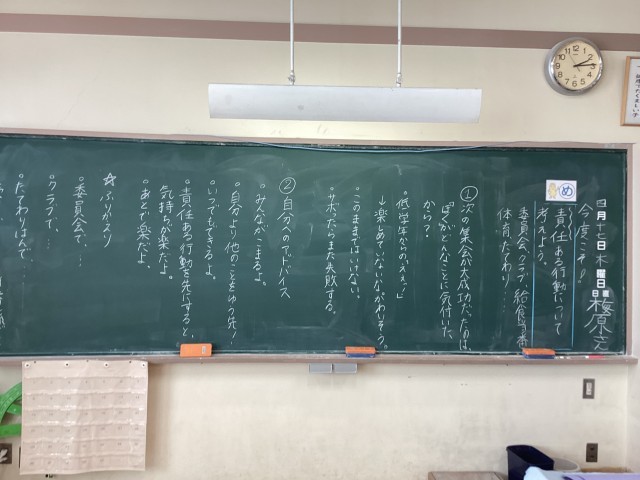 四月十七日木曜日
日直
め
今度こそ!
責任ある行動について
考えよう。
委員会、クラブ、給食当番
体育、たてわり…
①次の集会が大成功だったのは、
「ぼく」がどんなことに気付いた
から?
・低学年からの「えぇっ」
→楽しめていない、かわいそう。
・このままではいけない。
・サボったらまた失敗する。
②自分へのアドバイス
・みんながこまるよ。
・自分より他のことをゆう先!
・いつでもできるよ。
・責任ある行動を先にすると、
気持ちが楽だよ。
・あとで楽だよ。
☆ふりかえり
・委員会で…
・クラブで…
・たてわりはんで…